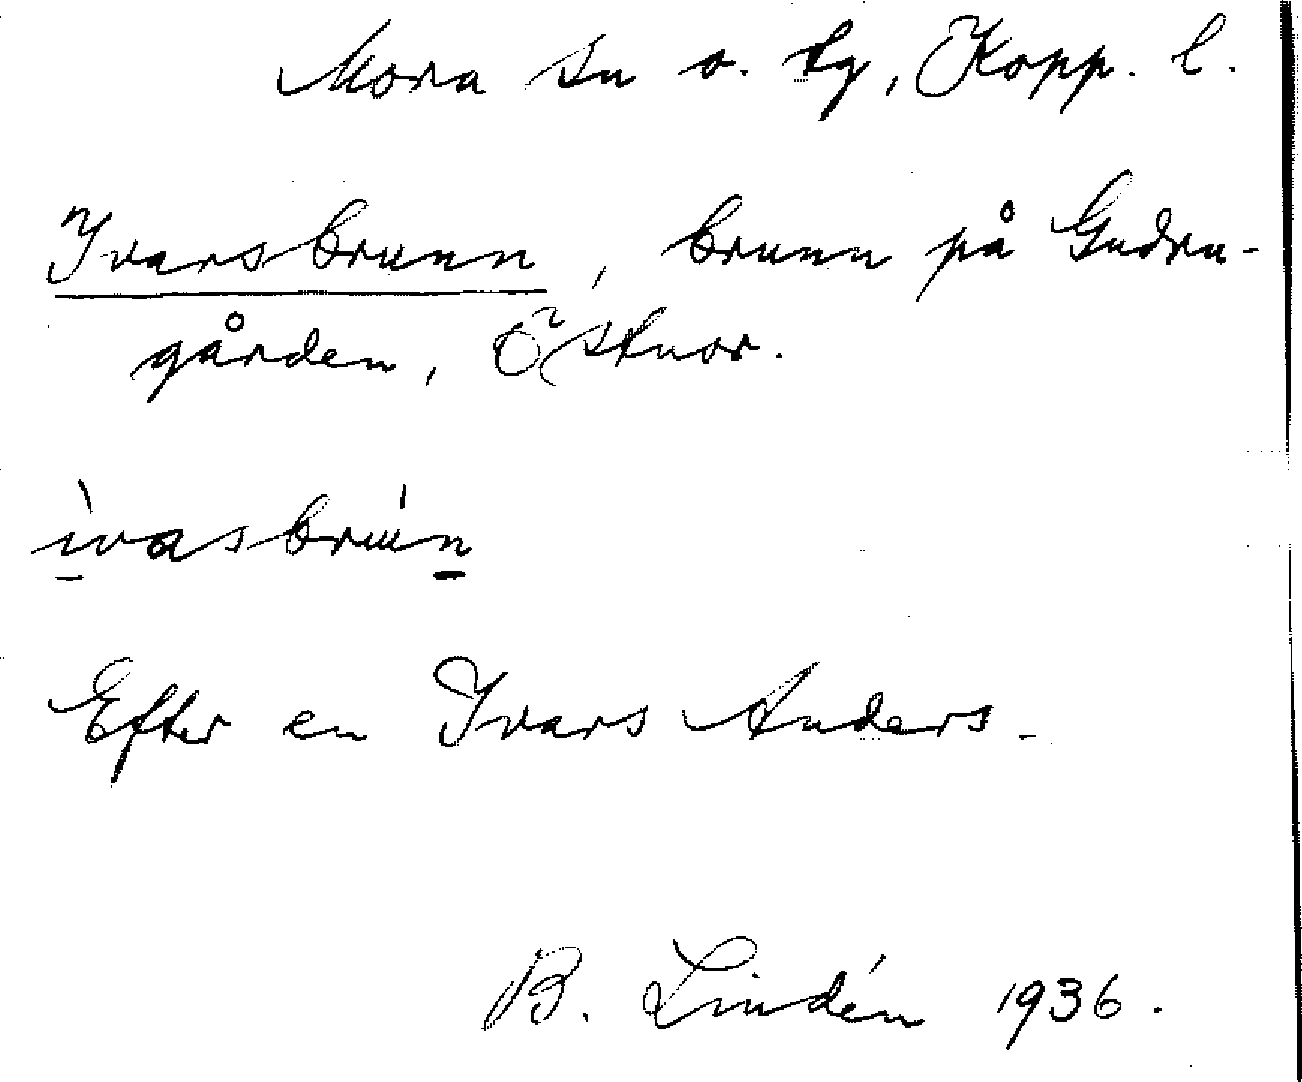 Mora sn o. tg, Kopp. l.
Ivarsbrunn, brunn på Gudru-
gården, Östnor.
ìvasbrún
Efter en Ivars Anders.
B. Lindén 1936.